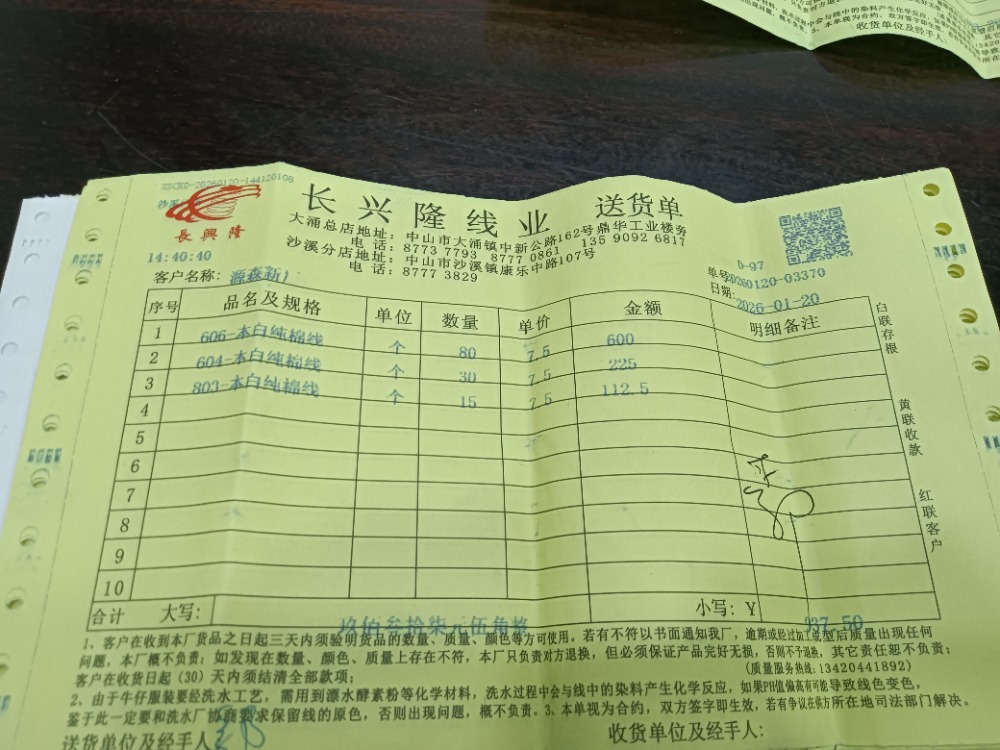 收货单位及经手人
XSCKD-20260120-144120108
長興隆
长兴隆线业 送货单
大涌总店地址：中山市大涌镇中新公路162号鼎华工业楼旁
电话：8773 7793 8777 0861 135 9092 6817
沙溪分店地址：中山市沙溪镇康乐中路107号
电话：8777 3829
14:40:40
D-97
客户名称：源森新厂
单号20260120-03370
日期：2026-01-20
序号 品名及规格 单位 数量 单价 金额 明细备注
1 606-本白纯棉线 个 80 7.5 600
2 604-本白纯棉线 个 30 7.5 225
3 803-本白纯棉线 个 15 7.5 112.5
4
5
6
7
8
9
10
合计 大写：玖佰叁拾柒元伍角整 小写：Y 937.50
白联存根
黄联收款
红联客户
1、客户在收到本厂货品之日起三天内须验明货品的数量、质量、颜色等方可使用，若有不符以书面通知我厂，逾期或经过加工成型后质量出现任何
问题，本厂概不负责；如发现在数量、颜色、质量上存在不符，本厂只负责对方退换，但必须保证产品完好无损，否则不予退换，其它责任恕不负责；
客户在收货日起（30）天内须结清全部款项； (质量服务热线:13420441892)
2、由于牛仔服装要经洗水工艺，需用到漂水酵素粉等化学材料，洗水过程中会与线中的染料产生化学反应，如果PH值偏高有可能导致线色变色，
鉴于此一定要和洗水厂协商要求保留线的原色，否则出现问题，概不负责。3、本单视为合约，双方签字即生效，若有争议在供方所在地司法部门解决。
送货单位及经手人 收货单位及经手人: